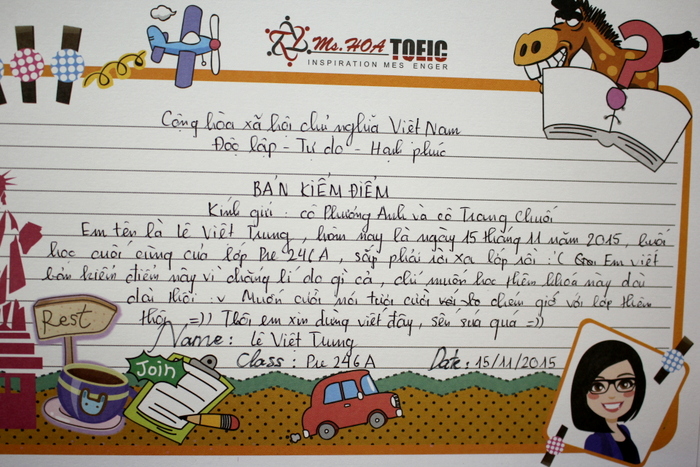 Ms. HOA TOEIC
INSPIRATION MES ENGER
Cộng hòa xã hội chủ nghĩa Việt Nam
Độc lập - Tự do - Hạnh phúc
BẢN KIỂM ĐIỂM
Kính gửi : cô Phương Anh và cô Trang Chuối
Em tên là Lê Việt Trung , hôm nay là ngày 15 tháng 11 năm 2015 , buổi
học cuối cùng của lớp Pre 246A , sắp phải rời xa lớp rồi :'( Em viết
bản kiểm điểm này vì chẳng lí do gì cả , chỉ muốn học thêm khóa này dài
dài thôi :v Muốn cười nói tươi cười với lớp thêm
thôi =)) Thôi em xin dừng viết đây , sến súa quá =))
Name : Lê Việt Trung
Class : Pre 246A Date : 15/11/2015
Rest
Join